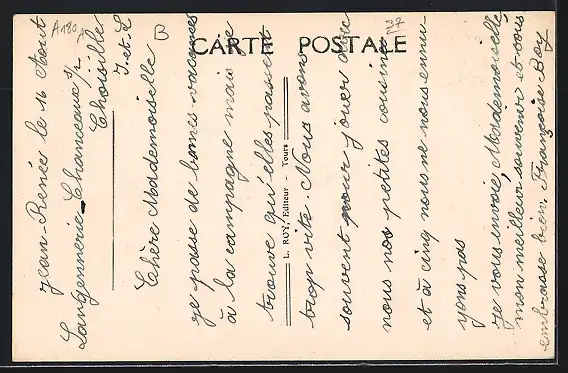 CARTE POSTALE
L. ROY, Editeur - Tours
A180
37
B
Jean-Renée le 16 Août
Langennerie-Chanceaux s/
Choisille
I-et-L
Chère Mademoiselle
je passe de bonnes vacances
à la campagne mais je
trouve qu'elles passent
trop vite. Nous avons
souvent pour jouer avec
nous nos petites cousine
et à cinq nous ne nous ennu-
yons pas
je vous envoie, Mademoiselle
mon meilleur souvenir et vous
embrasse bien. Françoise Boy